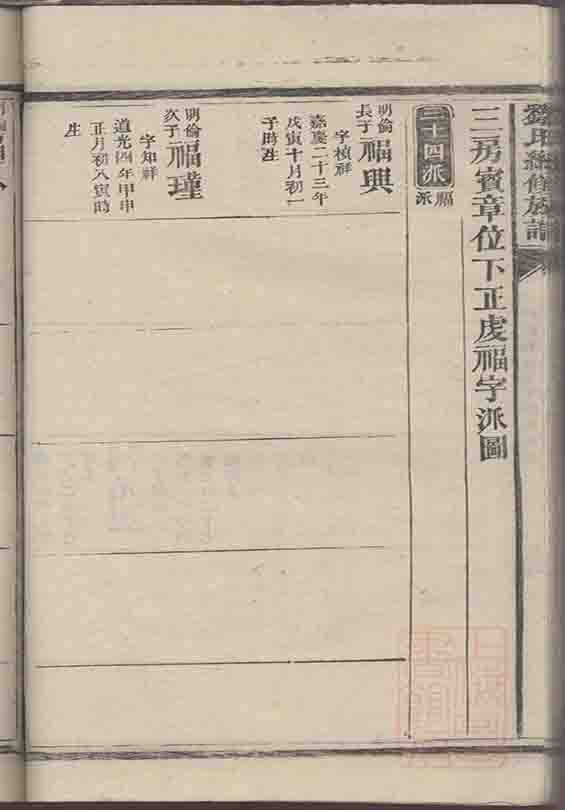 劉氏續修族譜
三房賓章位下正虔福字派圖
二十四派
福派
明倫長子 福興
字禎祥
嘉慶二十三年
戊寅十月初一
子時生
明倫次子 福瑾
字知祥
道光四年甲申
正月初八寅時
生